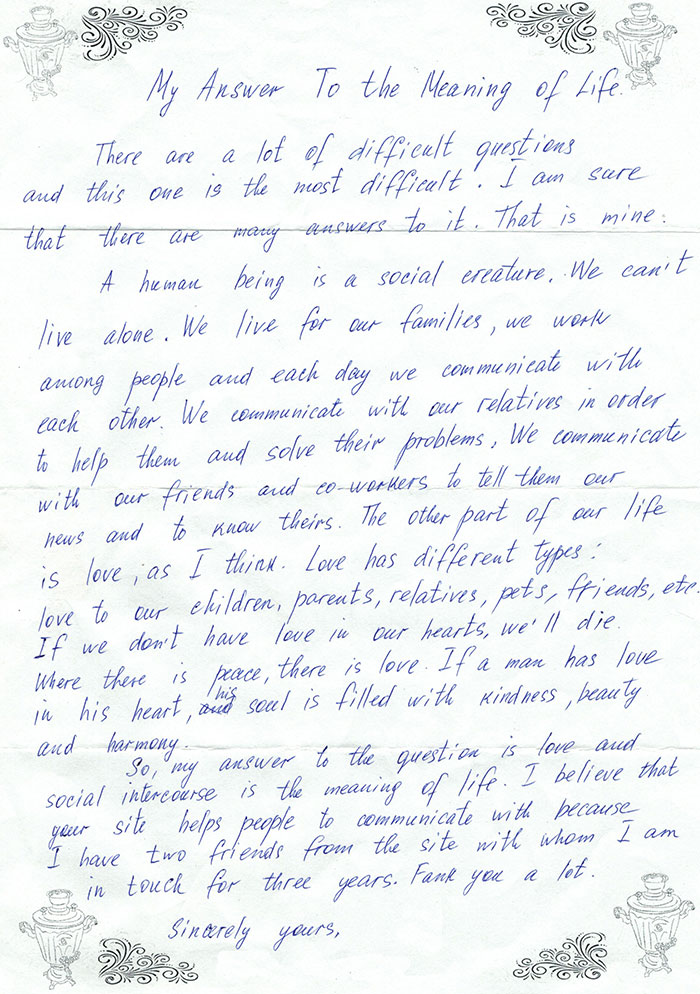 My Answer To the Meaning of Life.
There are a lot of difficult questions
and this one is the most difficult. I am sure
that there are many answers to it. That is mine:
A human being is a social creature. We can't
live alone. We live for our families, we work
among people and each day we communicate with
each other. We communicate with our relatives in order
to help them and solve their problems. We communicate
with our friends and co-workers to tell them our
news and to know theirs. The other part of our life
is love, as I think. Love has different types:
love to our children, parents, relatives, pets, friends, etc.
If we don't have love in our hearts, we'll die.
Where there is peace, there is love. If a man has love
in his heart, his soul is filled with kindness, beauty
and harmony.
So, my answer to the question is love and
social intercourse is the meaning of life. I believe that
your site helps people to communicate with because
I have two friends from the site with whom I am
in touch for three years. Fank you a lot.
Sincerely yours,